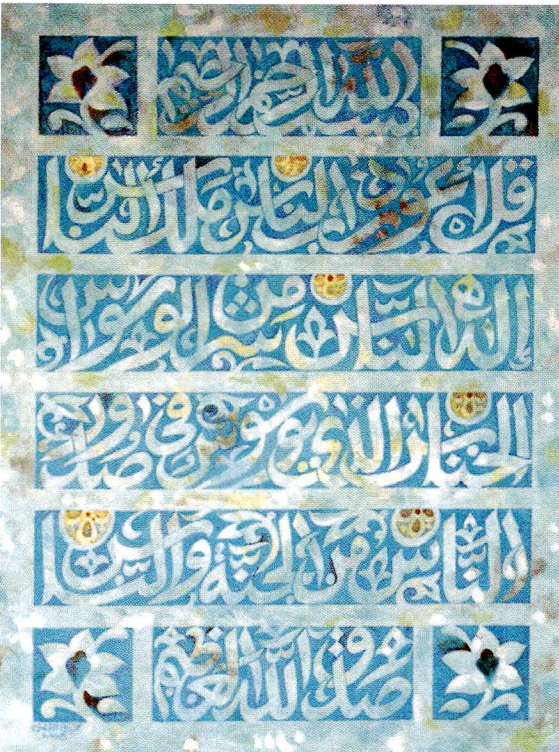 بسم الله الرحمن الرحيم
قل أعوذ برب الناس ملك الناس
إله الناس من شر الوسواس
الخناس الذي يوسوس في صدور
الناس من الجنة والناس
صدق الله العظيم